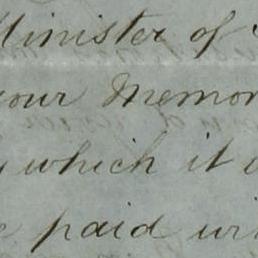 Minister of
your Memor
which it
paid wi